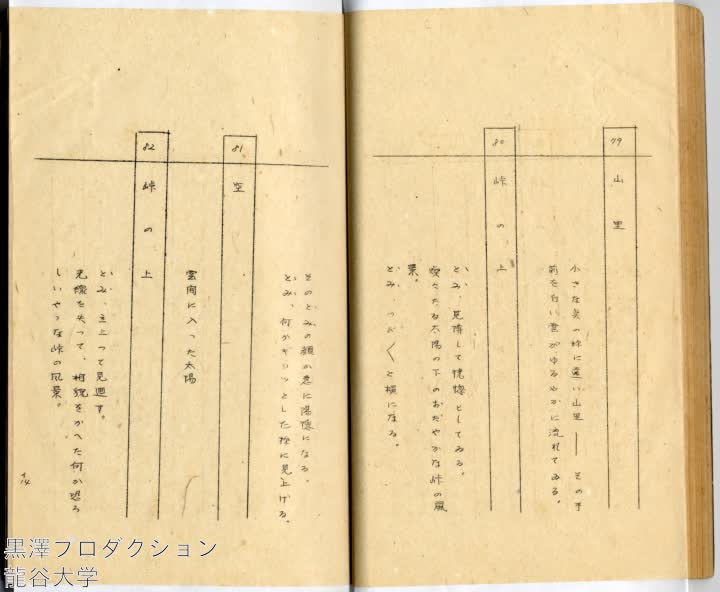 79
山里
小さな矢の様に遠い山里――その手
前を白い雲がゆるやかに流れてゐる。
80
峠の上
とみ、見惚して恍惚としてゐる。
燦々たる太陽の下のおだやかな峠の風
景。
とみ、つぶ〱と横になる。
81
空
そのとみの顔が急に陽陰になる。
とみ、何かギヨッとした様に見上げる。
雲間に入った太陽
82
峠の上
とみ、立上って見廻す。
光線を失って、相貌をかへた何か恐ろ
しいやうな峠の風景。
黒澤プロダクション
龍谷大学